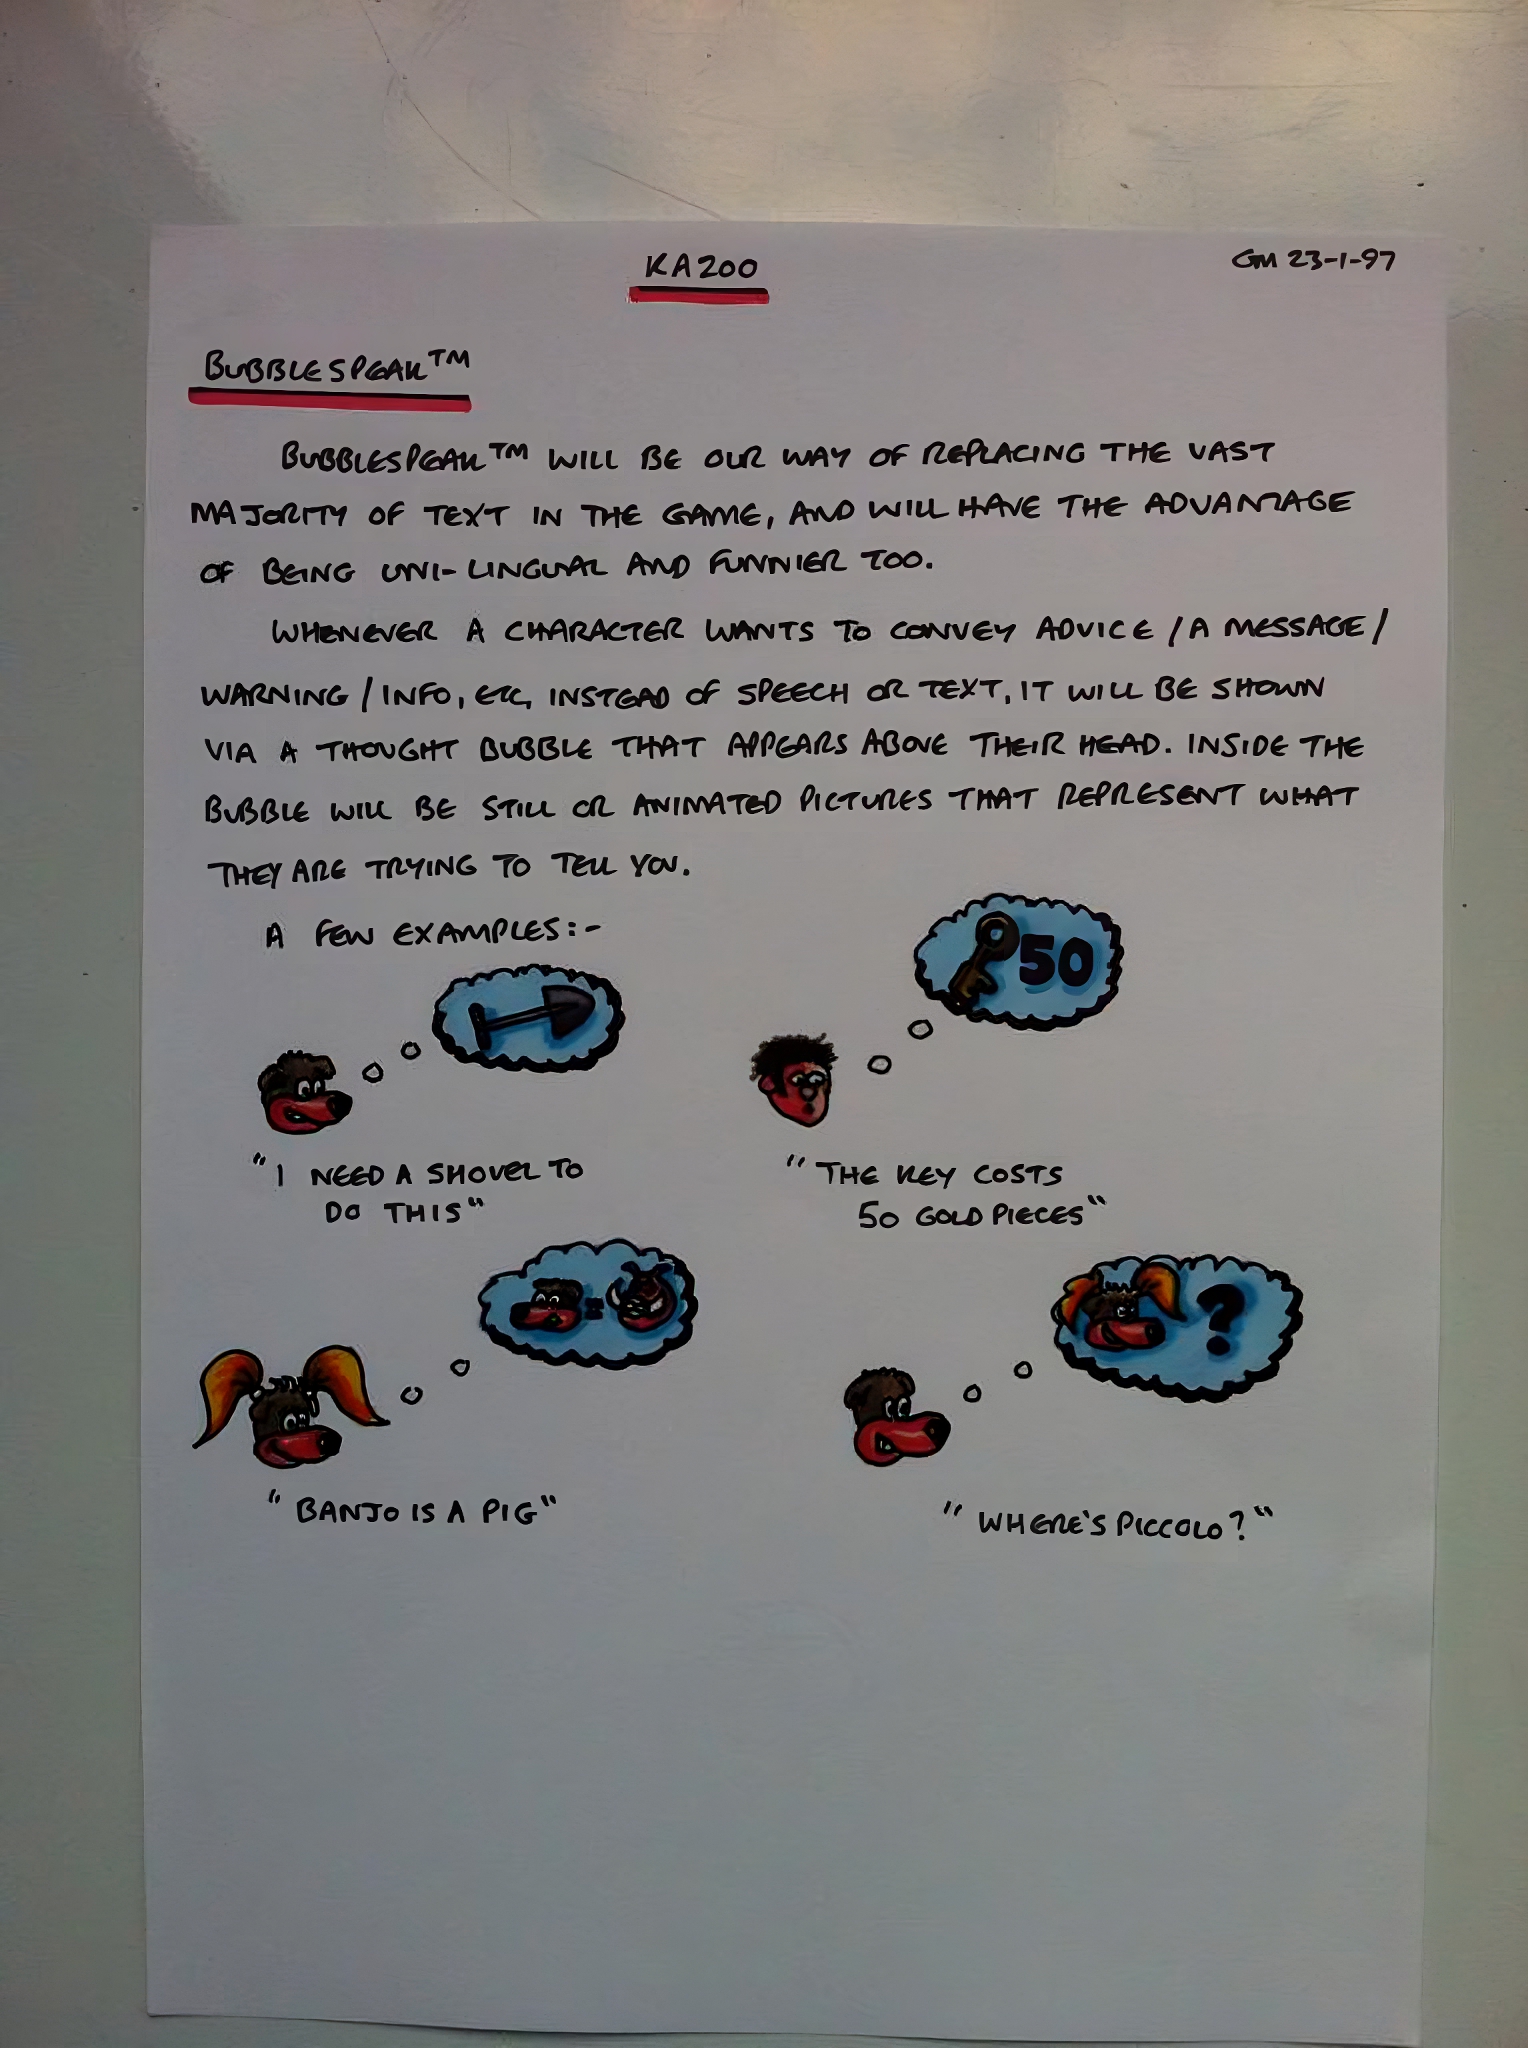 KAZOO
GM 23-1-97
BUBBLESPEAK™
BUBBLESPEAK™ WILL BE OUR WAY OF REPLACING THE VAST
MAJORITY OF TEXT IN THE GAME, AND WILL HAVE THE ADVANTAGE
OF BEING UNI-LINGUAL AND FUNNIER TOO.
WHENEVER A CHARACTER WANTS TO CONVEY ADVICE / A MESSAGE /
WARNING / INFO, ETC, INSTEAD OF SPEECH OR TEXT, IT WILL BE SHOWN
VIA A THOUGHT BUBBLE THAT APPEARS ABOVE THEIR HEAD. INSIDE THE
BUBBLE WILL BE STILL OR ANIMATED PICTURES THAT REPRESENT WHAT
THEY ARE TRYING TO TELL YOU.
A FEW EXAMPLES:-
50
"I NEED A SHOVEL TO
DO THIS"
"THE KEY COSTS
50 GOLD PIECES"
=
?
"BANJO IS A PIG"
"WHERE'S PICCOLO?"